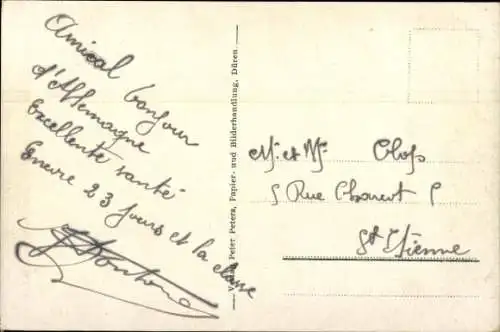 Amical bonjour
d'Allemagne
Excellente santé
Encore 23 jours et la classe
Verlag Peter Peters, Papier- und Bilderhandlung, Düren
Mr et Mme
5 Rue
St Etienne